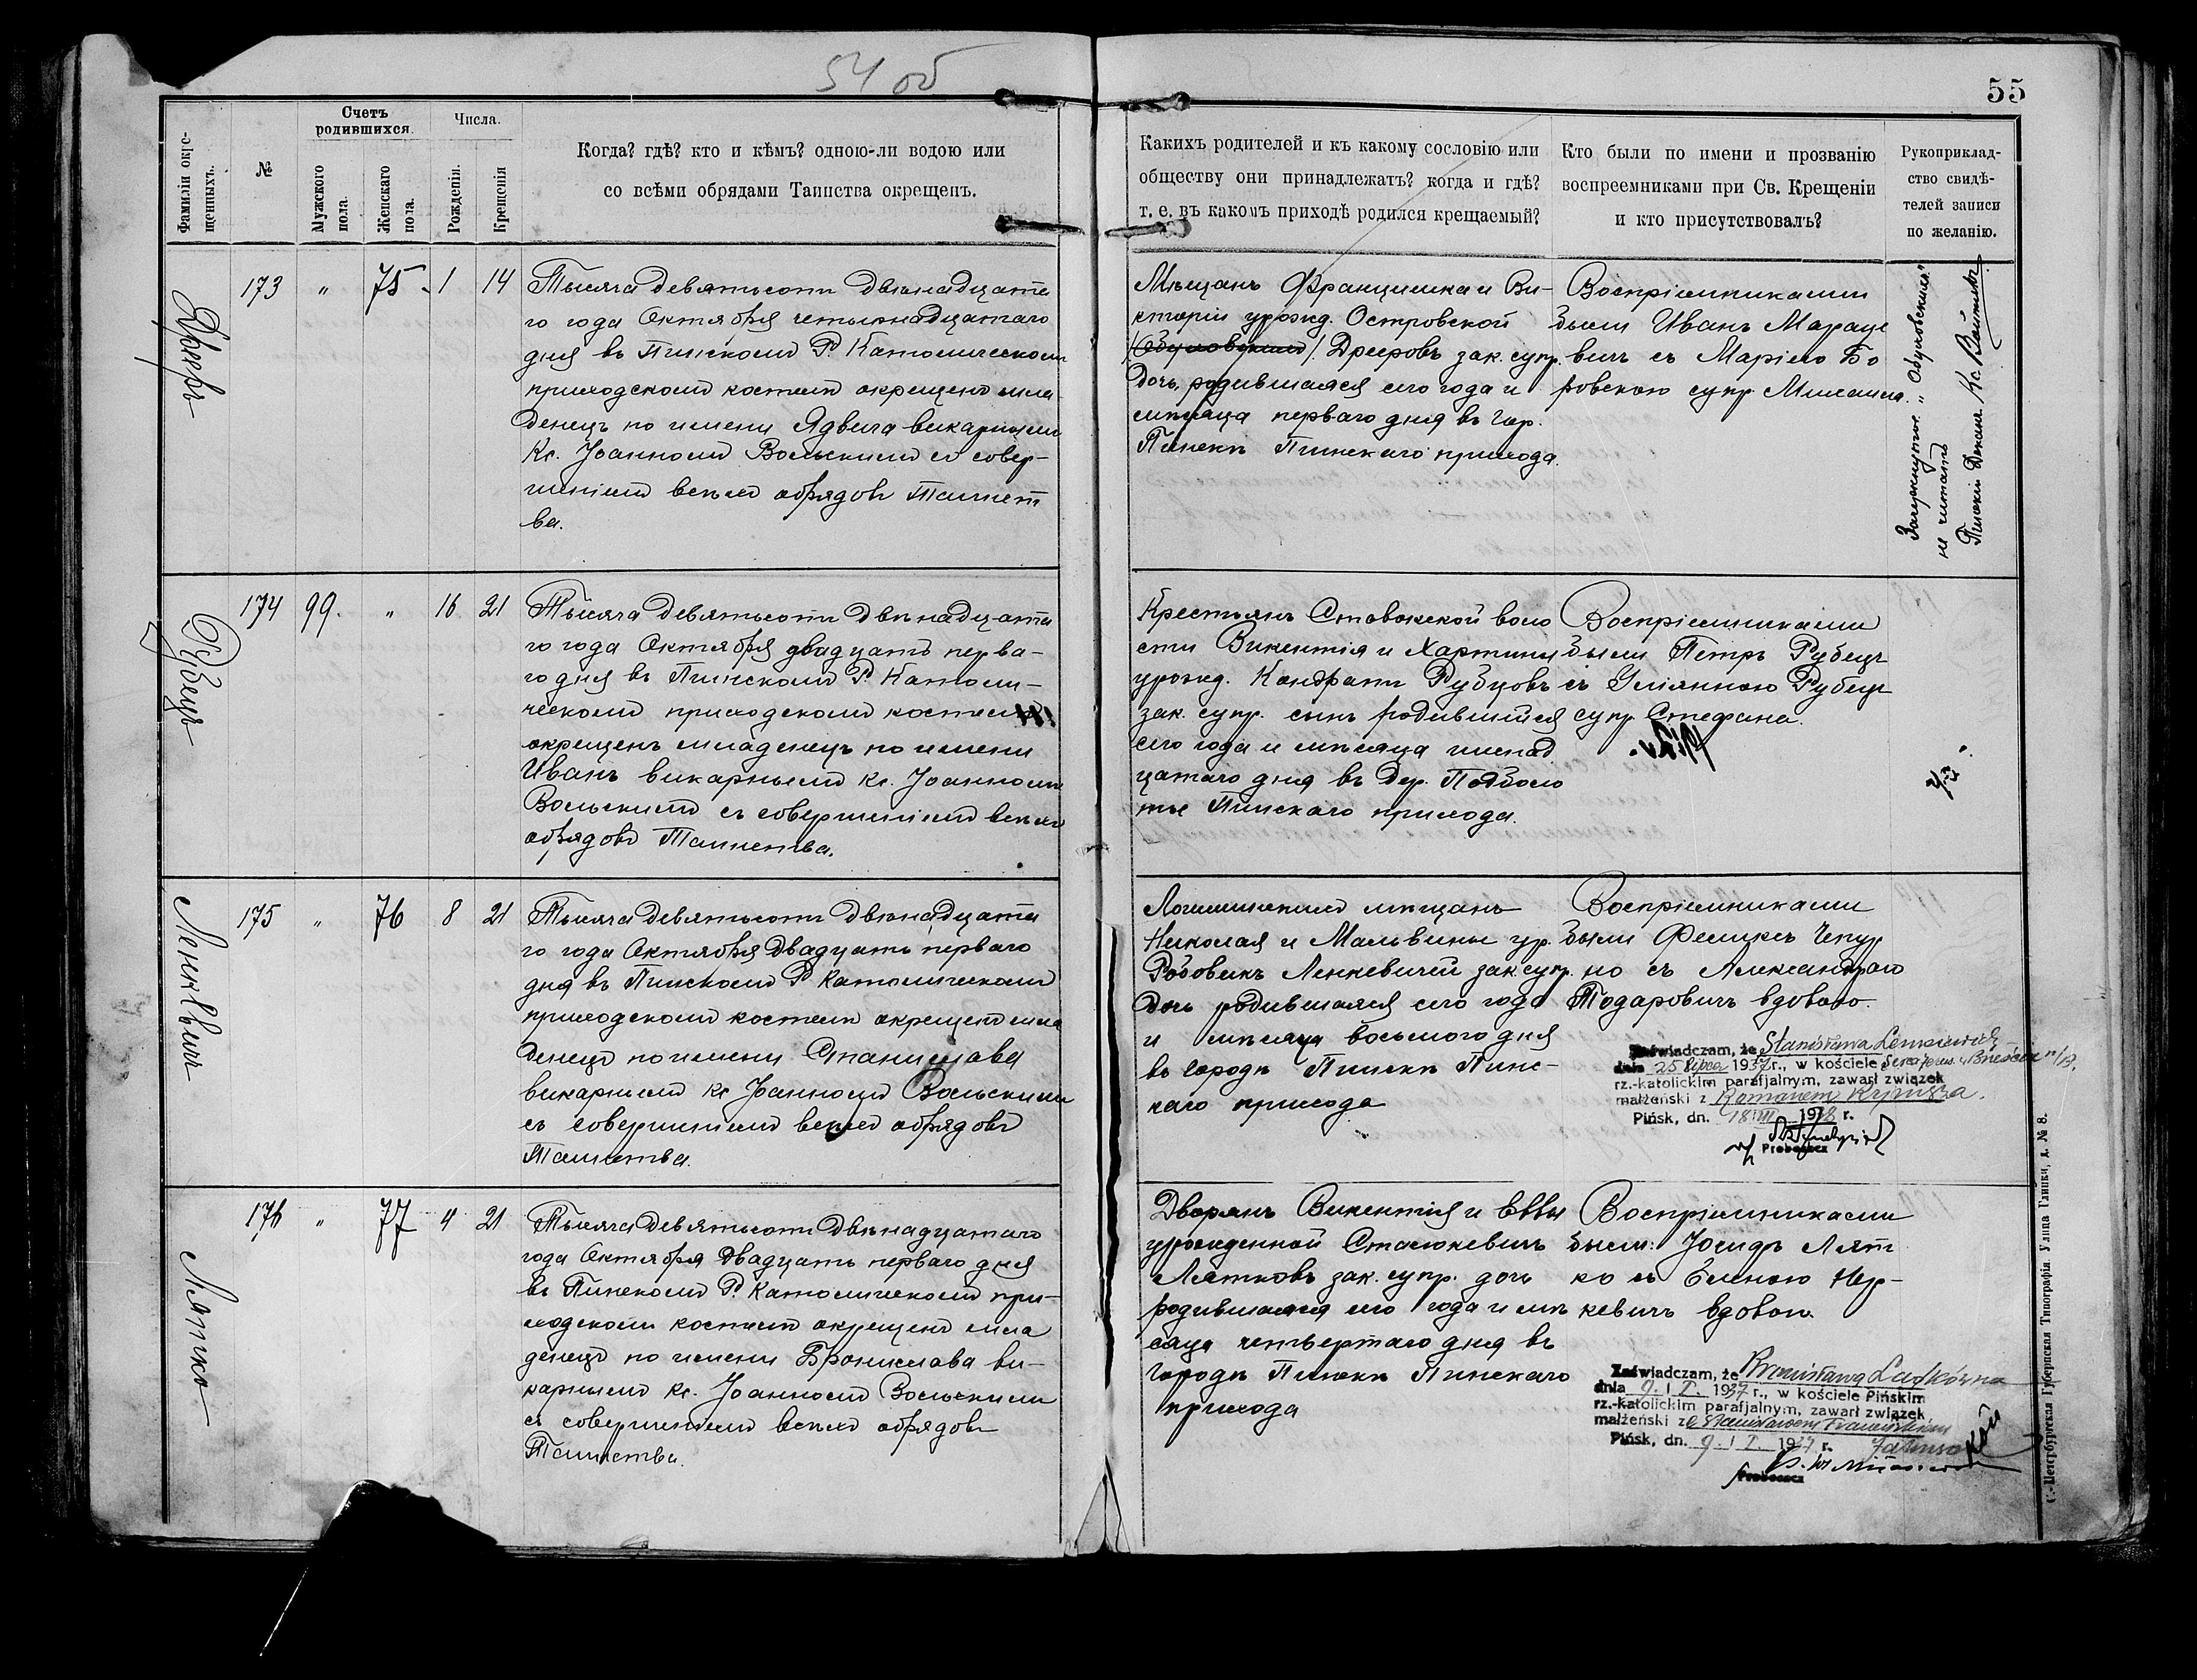 54 об
55
Фамиліи окре-
щенныхъ.
№
Счетъ
родившихся.
Мужского
пола.
Женскаго
пола.
Числа.
Рожденія.
Крещенія
Когда? гдѣ? кто и кѣмъ? одною-ли водою или
со всѣми обрядами Таинства окрещенъ.
Какихъ родителей и къ какому сословію или
обществу они принадлежатъ? когда и гдѣ?
т. е. въ какомъ приходѣ родился крещаемый?
Кто были по имени и прозванію
воспреемниками при Св. Крещеніи
и кто присутствовалъ?
Рукоприклад-
ство свидѣ-
телей записи
по желанію.
173 " 75 1 14
Тысяча девятьсотъ двѣнадцата
го года Октября четырнадцатаго
дня въ Пинскомъ Р Католическомъ
приходскомъ костелѣ окрещенъ мла
денецъ по имени Ядвига викарнымъ
Кс. Іоанномъ Вольскимъ съ совер-
шеніемъ всѣхъ обрядовъ Таинст
ва.
Мѣщанъ Францишка и Ви-
кторіи урожд. Островской
Дреровъ зак. супр.
Дочь, родившаяся сего года и
мѣсяца перваго дня въ гор.
Пинскѣ Пинскаго прихода.
Воспріемниками
были Иванъ Мараце
вичъ съ Маріею Бо
ровскою супр Михаила.
Зачеркнутое
не читать
Пинскій Деканъ Кс.
Рубецъ
174 99. " 16 21
Тысяча девятьсотъ двѣнадцата
го года Октября двадцать перва-
го дня въ Пинскомъ Р. Католи-
ческомъ приходскомъ костелѣ
окрещенъ младенецъ по имени
Иванъ викарнымъ кс. Іоанномъ
Вольскимъ съ совершеніемъ всѣхъ
обрядовъ Таинства.
Крестьянъ Ставокской воло
сти Викентія и Хартины
урожд. Кондрати Рубцовъ
зак. супр. сынъ родившійся
сего года и мѣсяца шестнад
цатаго дня въ дер. Подболо
тье Пинскаго прихода.
Воспріемниками
были Петръ Рубецъ
съ Уліянною Рубецъ
супр. Стефана.
175 " 76 8 21
Тысяча девятьсотъ двѣнадцата
го года Октября двадцать перваго
дня въ Пинскомъ Р Католическомъ
приходскомъ костелѣ окрещенъ мла
денецъ по имени Станислава
викарнымъ кс Іоанномъ Вольскимъ
съ совершеніемъ всѣхъ обрядовъ
Таинства.
Логишинскихъ мѣщанъ
Николая и Мальвины ур.
Ленкевичей зак супр.
дочь родившаяся сего года
и мѣсяца восьмого дня
въ городѣ Пинскѣ Пинс-
каго прихода
Воспріемниками
были Феликсъ Чепур
но съ Александрою
Тодаровичъ вдовою.
Zaświadczam, że Stanisława
dnia 25 lipca 1937 r., w kościele
rz.-katolickim parafjalnym, zawarł związek
małżeński z Romanem
Pińsk, dn. 18 III 1938 r.
Proboszcz
Лятко
176 " 77 4 21
Тысяча девятьсотъ двѣнадцатаго
года Октября двадцать перваго дня
въ Пинскомъ Р. Католическомъ при-
ходскомъ костелѣ окрещенъ мла
денецъ по имени Бронислава ви-
карнымъ Кс. Іоанномъ Вольскимъ
съ совершеніемъ всѣхъ обрядовъ
Таинства.
Дворянъ Викентія и Еввы
урожденной Стасюкевичъ
Лятковъ зак. супр. дочь
родившаяся сего года и мѣ
сяца четвертаго дня въ
городѣ Пинскѣ Пинскаго
прихода
Воспріемниками
были: Іосифъ Лят
ко съ Еленою Нер-
кевичъ вдовою.
Zaświadczam, że Bronisława
dnia 9. I. 1937 r., w kościele Pińskim
rz.-katolickim parafjalnym, zawarł związek
małżeński z
Pińsk, dn. 9. I. 1937 r.
Proboszcz
С.-Петербургская Губернская Типографія. Улица Глинки, д. № 8.